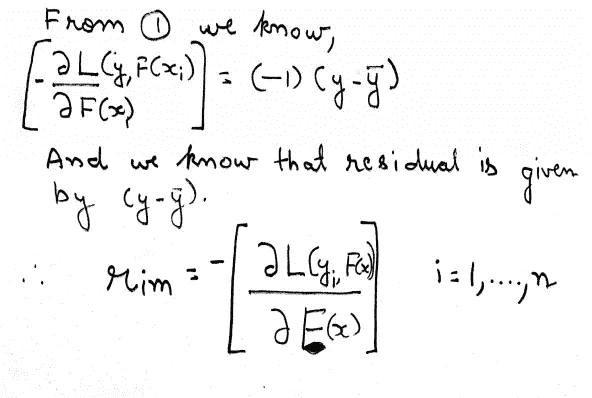 From ① we know,
[-∂L(y, F(xi)) / ∂F(x)] = (-1) (y-ȳ)
And we know that residual is given
by (y-ȳ).
∴ rim = -[∂L(yi, F(x)) / ∂F(x)] i=1,....,n